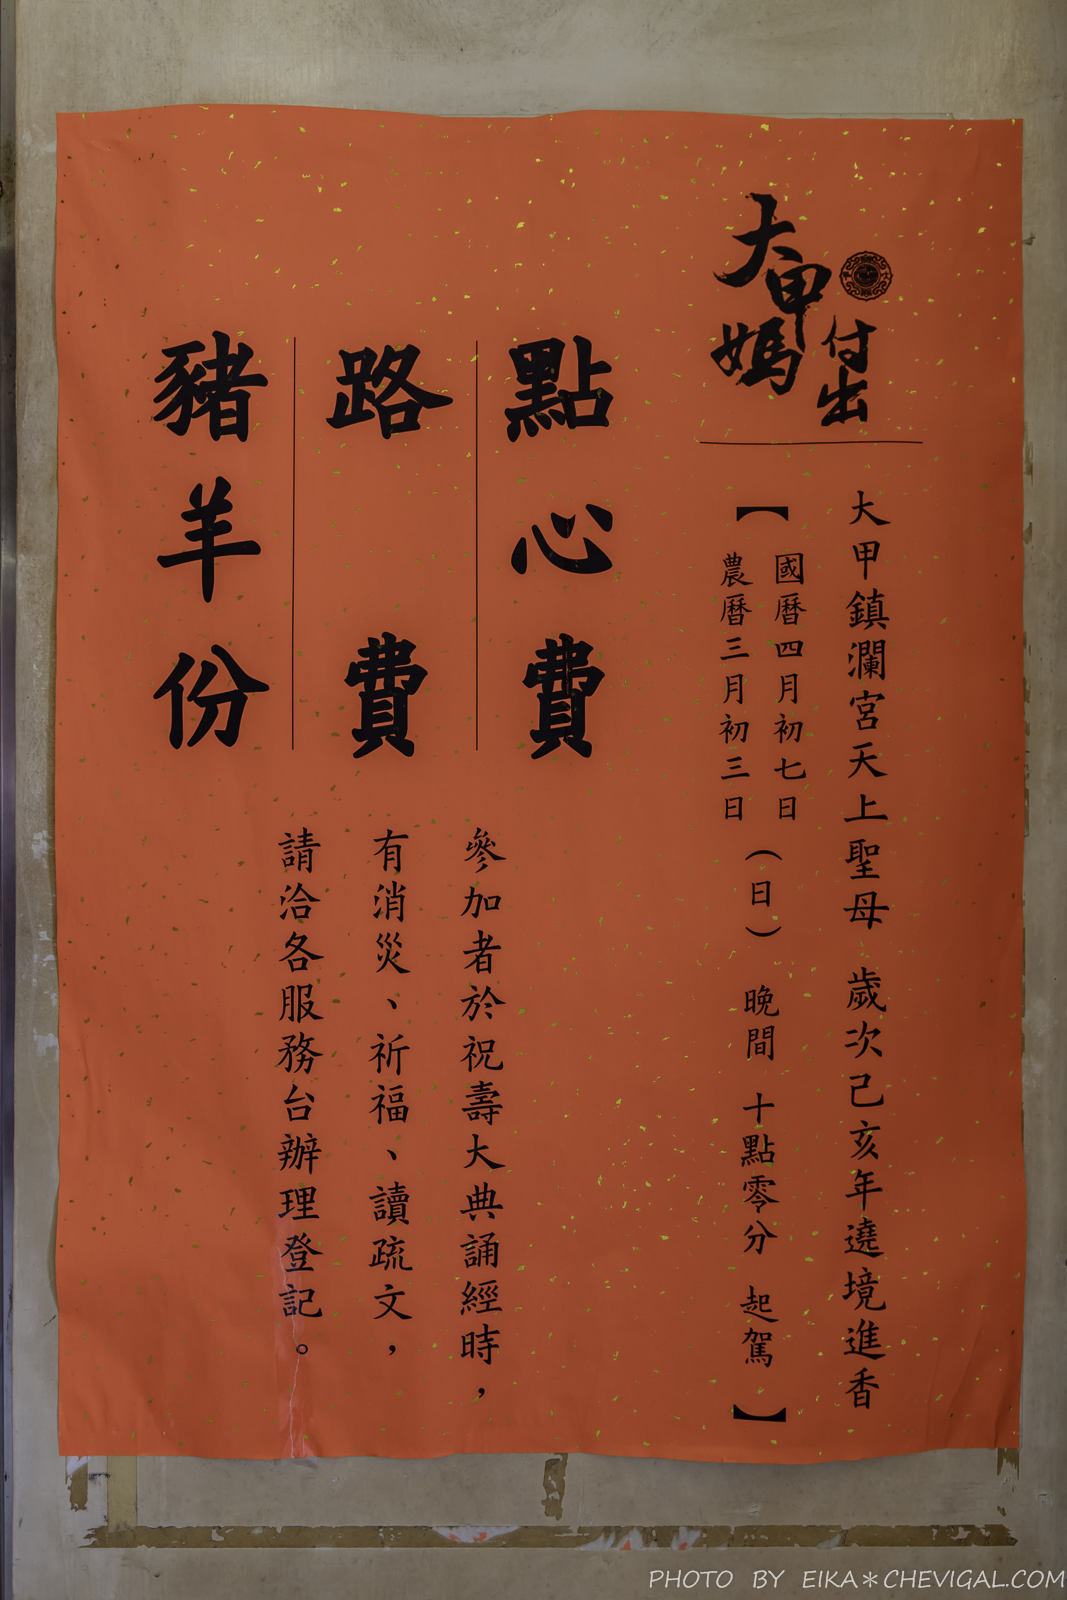 大甲媽
付出
大甲鎮瀾宮天上聖母 歲次己亥年遶境進香
【國曆四月初七日
農曆三月初三日(日) 晚間 十點零分 起駕】
點心費
路費
豬羊份
參加者於祝壽大典誦經時，
有消災、祈福、讀疏文，
請洽各服務台辦理登記。
PHOTO BY EIKA＊CHEVIGAL.COM